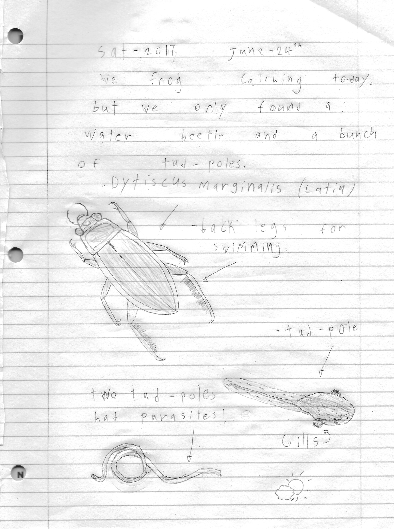 Sat-2017 June-24th
we frog catching today.
but we only found a:
water beetle and a bunch
of tad-poles.
Dytiscus Marginalis (Latin)
-back legs for
swimming.
-tad-pole
the tad-poles
had parasites!
Gills